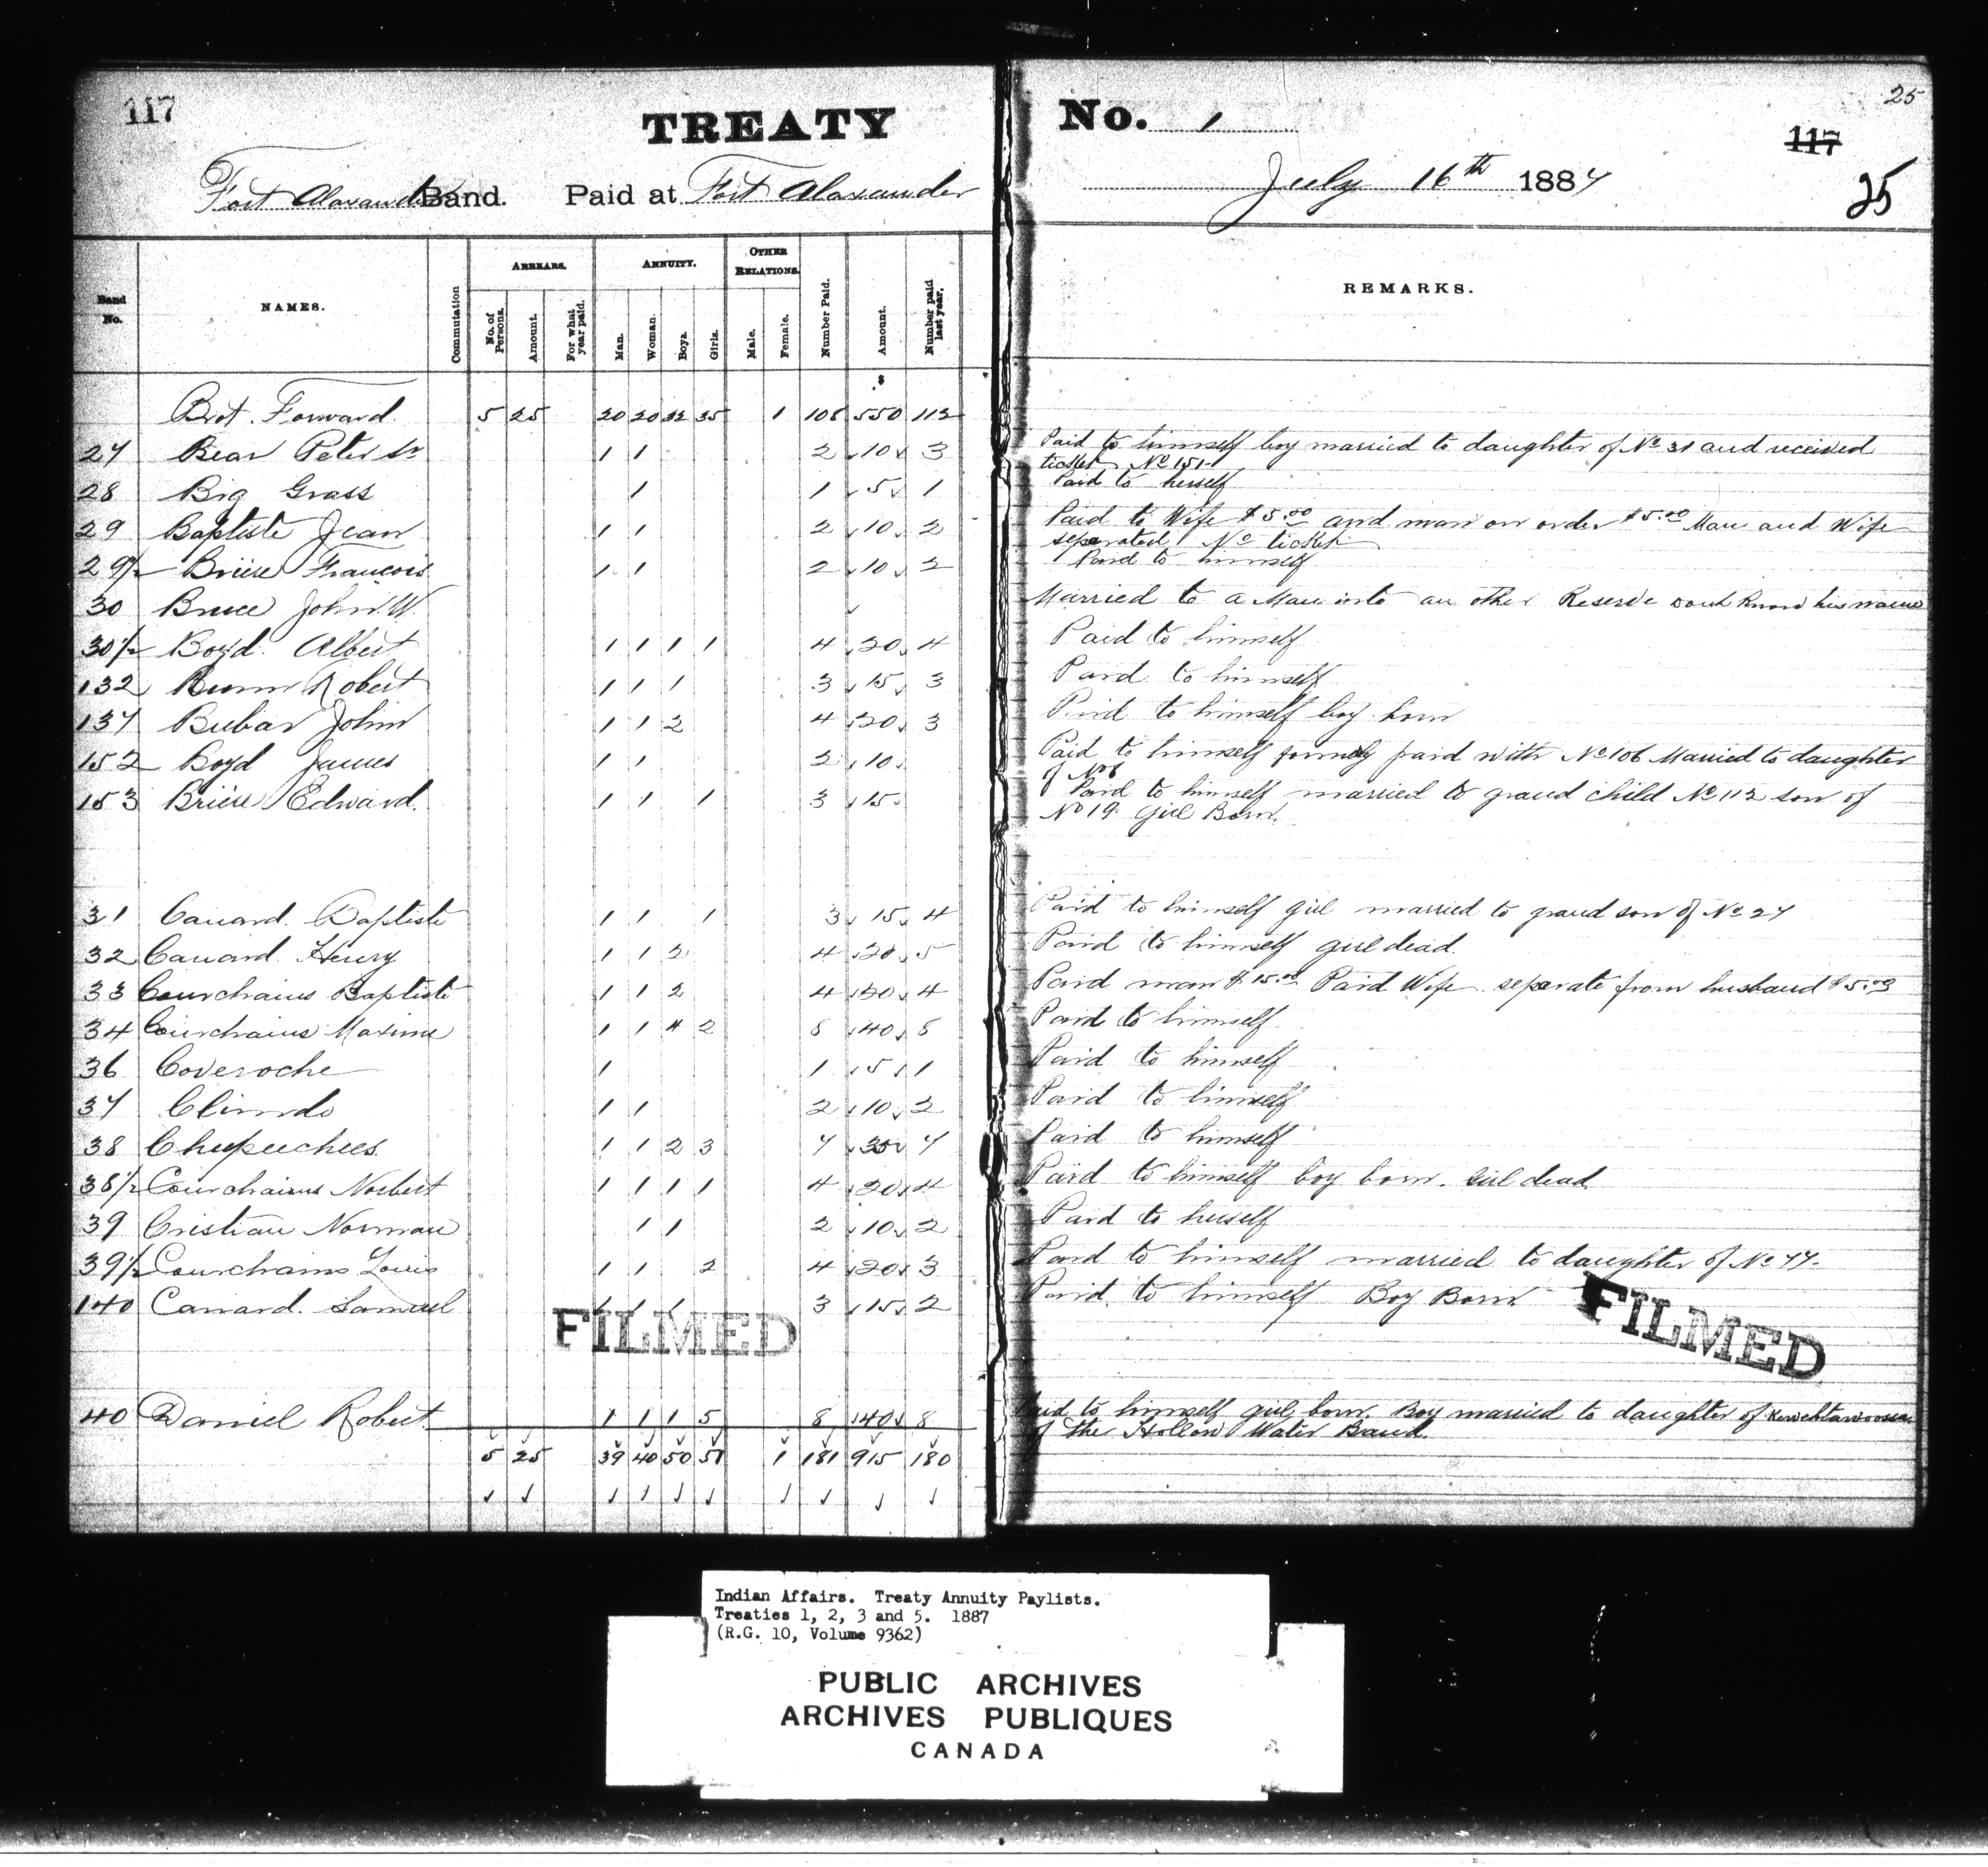 117
TREATY
No. 1
25
117
25
Fort Alexander Band. Paid at Fort Alexander
July 16th 1887
Band No.
NAMES.
Commutation
ARREARS.
No. of Persons.
Amount.
For what year paid.
ANNUITY.
Man.
Woman.
Boys.
Girls.
OTHER RELATIONS.
Male.
Female.
Number Paid.
Amount.
Number paid last year.
REMARKS.
$
Brot. Forward 5 25 20 20 32 35 1 108 550 112
27 Bear Peter Sr 1 1 2 10 3 Paid to himself boy married to daughter of No 31 and received
ticket No 151
28 Big Grass 1 1 5 1 Paid to herself
29 Baptiste Jean 1 1 2 10 2 Paid to Wife $5.00 and man on order $5.00 Man and Wife
separated No ticket
29½ Brière Francois 1 1 2 10 2 Paid to himself
30 Bruce John W. Married to a Man into an other Reserve dont know his name
30½ Boyd Albert 1 1 1 1 4 20 4 Paid to himself
132 Robert 1 1 1 3 15 3 Paid to himself
137 Bubar John 1 1 2 4 20 3 Paid to himself boy born
152 Boyd James 1 1 2 10 Paid to himself formerly paid with No 106 Married to daughter
of No 8
153 Brière Edward. 1 1 1 3 15 Paid to himself married to grand child No 112 son of
No 19 Girl Born.
31 Canard Baptiste 1 1 1 3 15 4 Paid to himself girl married to grand son of No 27
32 Canard Henry 1 1 2 4 20 5 Paid to himself girl dead.
33 Courchains Baptiste 1 1 2 4 20 4 Paid man $15.00 Paid Wife separate from husband $5.00
34 Courchains Maxime 1 1 4 2 8 40 8 Paid to himself
36 Coveroche 1 1 5 1 Paid to himself
37 Climdo 1 1 2 10 2 Paid to himself
38 Chupeechees 1 1 2 3 7 35 7 Paid to himself
38½ Courchains Norbert 1 1 1 1 4 20 4 Paid to himself boy born. Girl dead
39 Cristian Norman 1 1 2 10 2 Paid to herself
39½ Courchains Louis 1 1 2 4 20 3 Paid to himself married to daughter of No 77.
140 Canard. Samuel 1 1 1 3 15 2 Paid to himself Boy Born
FILMED
FILMED
40 Daniel Robert 1 1 1 5 8 40 8 Paid to himself girl born Boy married to daughter of
of the Hollow Water Band.
5 25 39 40 50 51 1 181 915 180
Indian Affairs. Treaty Annuity Paylists.
Treaties 1, 2, 3 and 5. 1887
(R.G. 10, Volume 9362)
PUBLIC ARCHIVES
ARCHIVES PUBLIQUES
CANADA